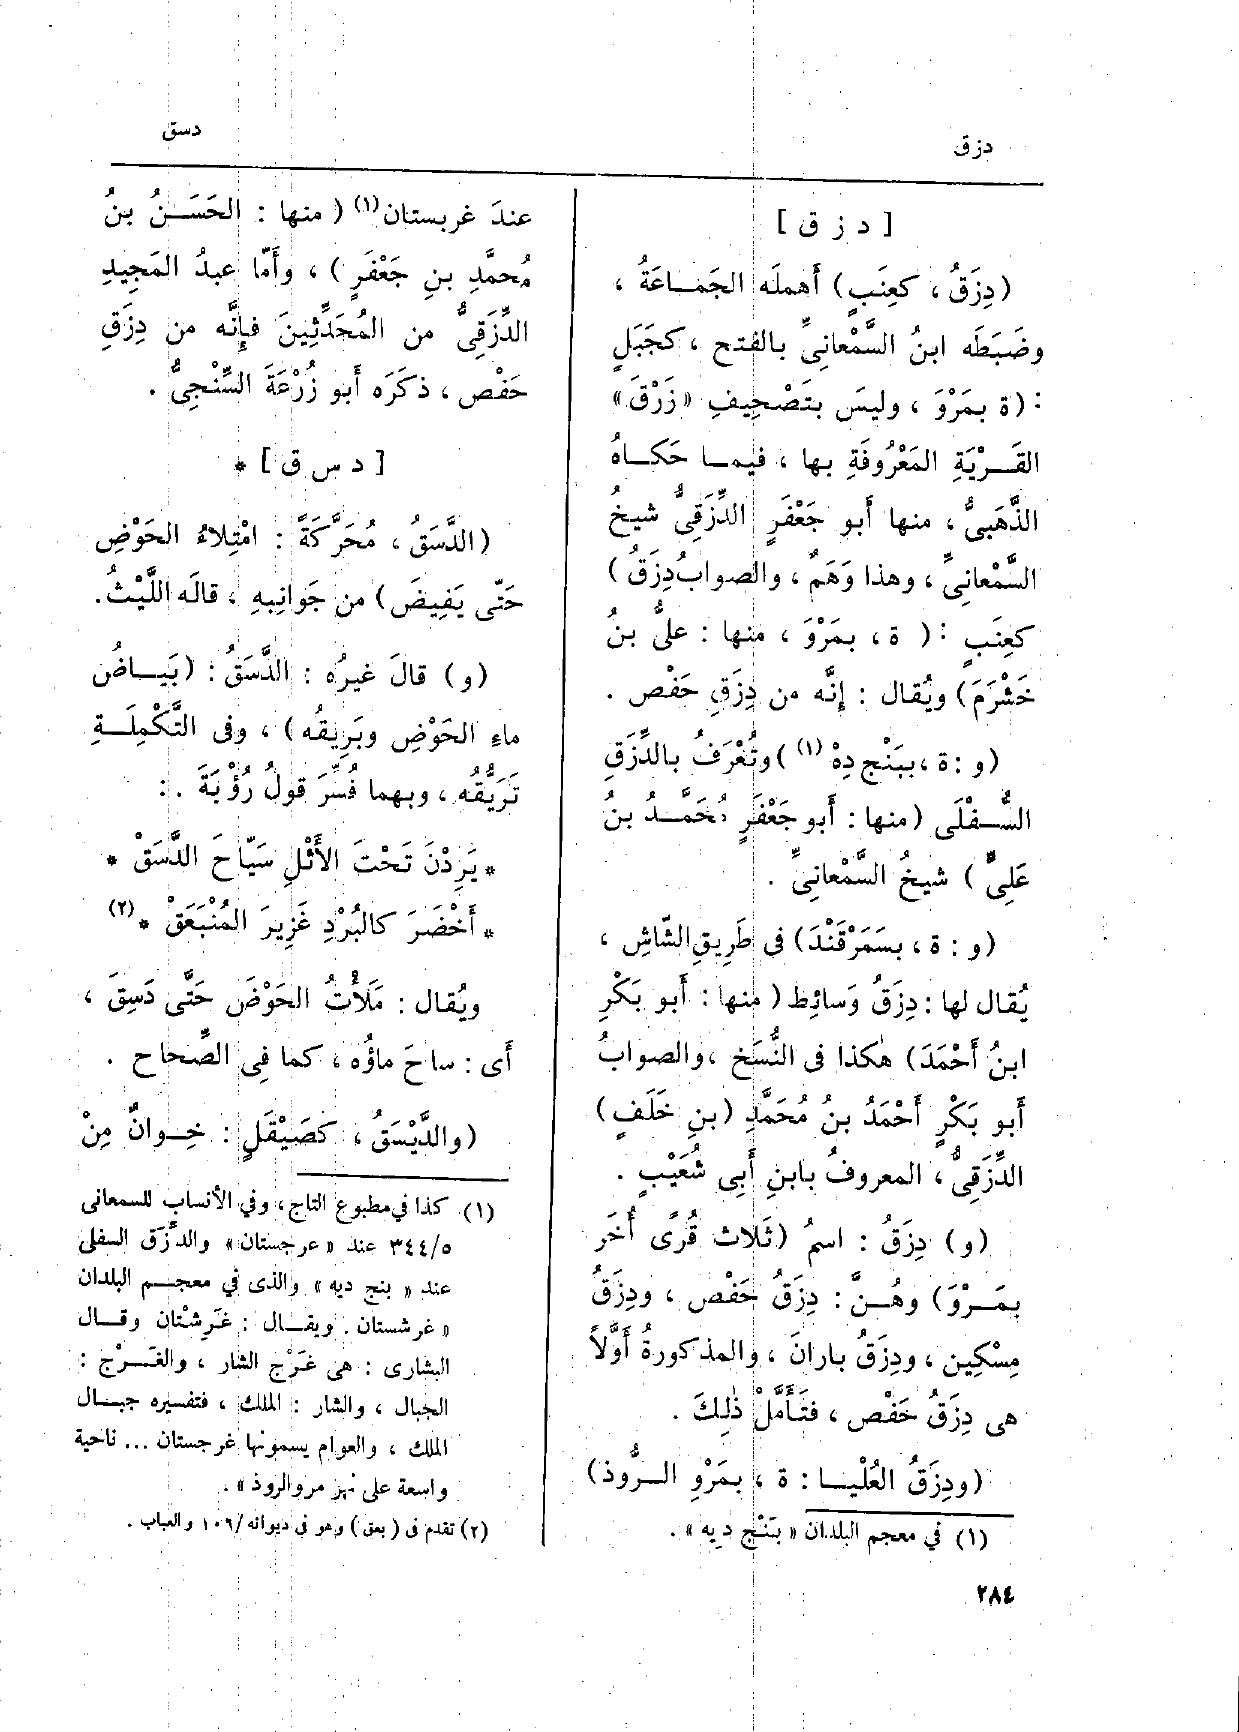 دزق
دسق
[ د ز ق ]
(دِزَقُ ، كعِنَبٍ) أَهملَه الجَمـاعَةُ ،
وضَبَطَه ابنُ السَّمْعانِيِّ بالفتح ، كجَبَلٍ
: (ة بمَرْوَ ، وليسَ بتَصْحِيفِ «زَرْقَ»
القَـرْيَةِ المَعْرُوفَةِ بها ، فيمـا حَكـاهُ
الذَّهَبِيُّ ، منها أَبو جَعْفَرٍ الدِّزَقِيُّ شيخُ
السَّمْعانِيِّ ، وهذا وَهَمٌ ، والصوابُ دِزَقُ )
كعِنَبٍ : ( ة ، بمَرْوَ ، منها : علىُّ بنُ
خَشْرَمَ) ويُقال : إِنَّه من دِزَقِ حَفْص .
(و : ة ، ببَنْج دِهْ (١) ) وتُعْرَفُ بالدِّزَقِ
السُّـفْلَى (منها : أَبو جَعْفَرٍ مُحَمَّـدُ بنُ
عَلِيٍّ ) شيخُ السَّمْعانِيِّ .
(و : ة ، بسَمَرْقَنْدَ) فى طَرِيقِ الشّاشِ ،
يُقال لها : دِزَقُ وَسائِط ( منها : أَبو بَكْرِ
ابنُ أَحْمَدَ) هٰكذا فى النُّسَخ ، والصوابُ
أَبو بَكْرٍ أَحْمَدُ بنُ مُحَمَّدِ (بنِ خَلَفٍ)
الدِّزَقِىُّ ، المعروفُ بابنِ أَبِى شُعَيْبٍ .
(و) دِزَقُ : اسمُ (ثَلاث قُرًى أُخَر
بمَـرْوَ) وهُـنَّ : دِزَقُ حَفْص ، ودِزَقُ
مِسْكِين ، ودِزَقُ باران ، والمذكورةُ أَوَّلاً
هى دِزَقُ حَفْص ، فتَأَمَّلْ ذٰلِكَ .
(ودِزَقُ العُلْيـا : ة ، بمَرْوِ الـرُّوذ)
(١) في معجم البلدان « بَنْج ديه » .
عندَ غربستان(١) ( منها : الحَسَـنُ بنُ
مُحمَّدِ بنِ جَعْفَرٍ ) ، وأَمّا عبدُ المَجِيدِ
الدِّزَقِىُّ من المُحَدِّثِينَ فإِنَّه من دِزَقِ
حَفْص ، ذكَرَه أَبو زُرْعَةَ السِّنْجِىُّ .
[ د س ق ] *
(الدَّسَقُ ، مُحَرَّكَةً : امْتِلاءُ الحَوْضِ
حَتّى يَفِيضَ) من جَوانِبِهِ ، قالَه اللَّيْثُ .
(و) قالَ غيرُه : الدَّسَقُ : (بَيـاضُ
ماءِ الحَوْضِ وبَرِيقُه) ، وفى التَّكْمِلَـةِ
تَرَيُّقُه ، وبهما فُسِّرَ قولُ رُؤْبَةَ . :
* يَرِدْنَ تَحْتَ الأَثْلِ سَيّاحَ الدَّسَقْ *
* أَخْضَرَ كالبُرْدِ غَزِيرَ المُنْبَعَقْ *(٢)
ويُقال : مَلَأْتُ الحَوْضَ حَتَّى دَسِقَ ،
أَى : ساحَ ماؤُه ، كما فِى الصِّحاح .
(والدَّيْسَقُ ، كصَيْقَلٍ : خِـوانٌ مِنْ
(١) كذا في مطبوع التاج ، وفي الأنساب للسمعانى
٣٤٤/٥ عند « عرجستان» والدِّزَق السفلى
عند « بنج ديه » والذى في معجـم البلدان
« غرشستان . ويقـال : غَرِشْتان وقـال
البشارى : هى غَرْج الشار ، والغَـرْج :
الجبال ، والشار : الملك ، فتفسيره جبـال
الملك ، والعوام يسمونها غرجستان ... ناحية
واسعة على نهر مرو الروذ » .
(٢) تقدم فى ( بعق ) وهو فى ديوانه /١٠٦ والعباب .
٢٨٤